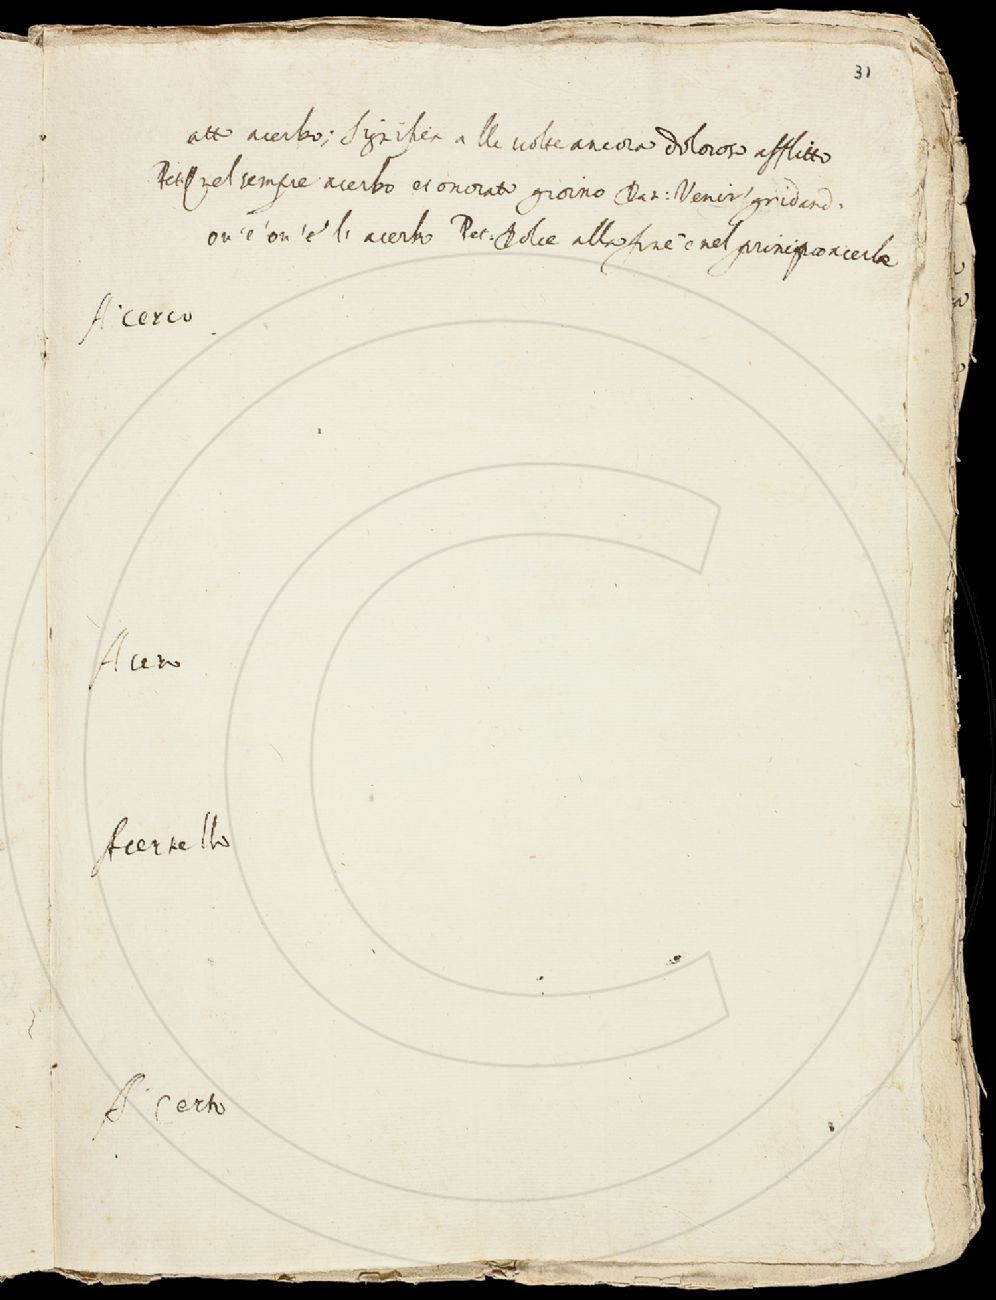 31
atto acerbo; Significa alle uolte ancora doloroso afflitto
Pet: nel sempre acerbo et onorato giorno Dan: Venir' gridand.
ou'è ou'è l' acerbo Pet: Dolce alla fine e nel principio acerba
A' cerco
Acero
Acertello
A' certo